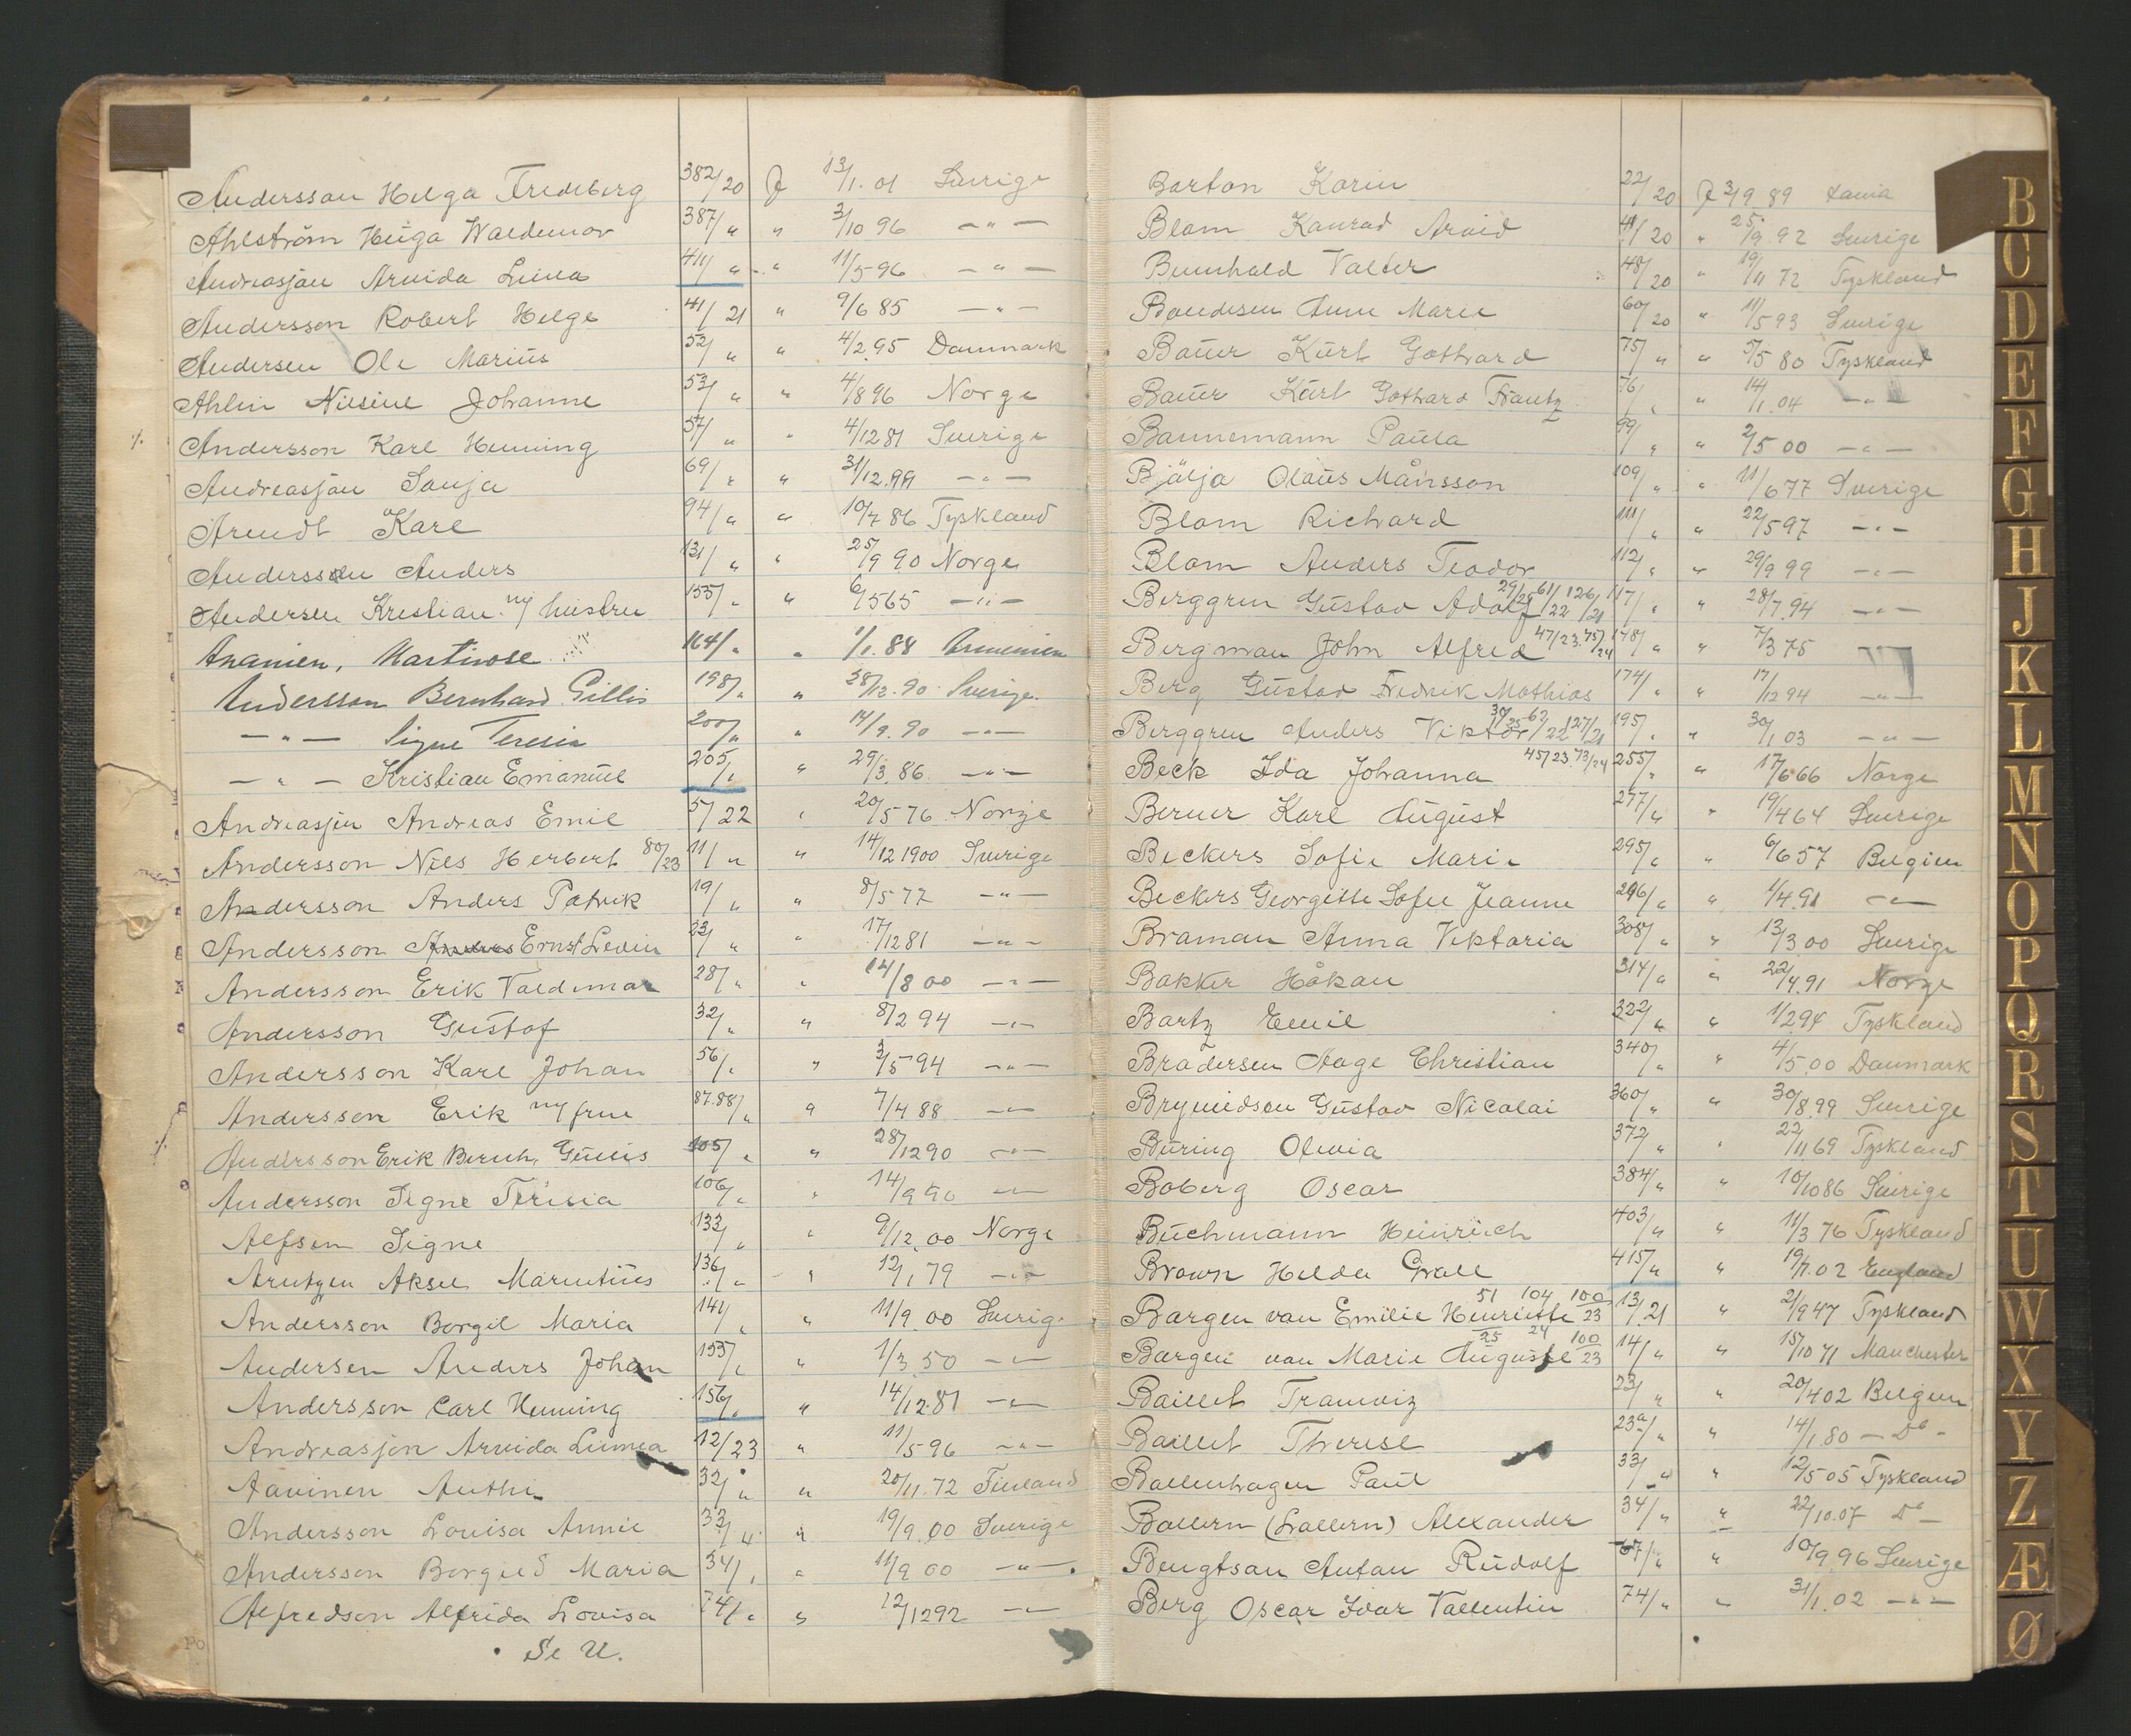 Andersson Helga Fredeberg 382/20 J 13/1.01 Sverige
Ahlström Hüga Waldemar 387/" " 3/10 96 —"—
Andreasjan Arvida Linea 411/" " 11/5 96 —"—
Andersson Robert Helge 41/21 " 9/6 85 —"—
Andersen Ole Mariüs 52/" " 4/2.95 Danmark
Ahlin Nilsine Johanne 53/" " 4/8 96 Norge
Andersson Karl Henning 57/" " 4/12 81 Sverige
Andreasjan Sanja 69/" " 31/12.99 —"—
Arendt Karl 94/" " 10/7 86 Tyskland
Andersson Anders 131/" " 25/9 90 Norge
Andersen Kristian m/ hüstru 155/" " 6/5 65 —"—
Ananien, Martirose 164/" " 1/1.88 Armenien
Andersson Bernhard Gillis 198/" " 28/12.90 Sverige.
—"— Signe Teresia 200/" " 14/9.90 —"—
—"— Kristian Emanüel 205/" " 29/3.86 —"—
Andreasjen Andreas Emil 5/22 " 20/5 76 Norge
Andersson Nils Herbert 80/23 11/" " 14/12 1900 Sverige
Andersson Anders Patrik 19/" " 8/5 77 —"—
Andersson Ernst Levin 23/" " 17/12 81 —"—
Andersson Erik Valdemar 28/" " 14/8 00 —"—
Andersson Güstaf 32/" " 8/2 94 —"—
Andersson Karl Johan 56/" " 3/5 94 —"—
Andersson Erik m/ frue 87.88/" " 7/4 88 —"—
Andersson Erik Bernh. Günis 105/" " 28/12 90 —"—
Andersson Signe Terisia 106/" " 14/9 90 —"—
Alfsen Signe 133/" " 9/12.00 Norge
Arntzen Aksel Marentiüs 136/" " 12/1 79 —"—
Andersson Borgil Maria 141/" " 11/9.00 Sverig.
Andersen Anders Johan 155/" " 1/3.50 —"—
Andersson Carl Henning 156/" " 14/12.81 —"—
Andreasjon Arvida Linnea 12/23 " 11/5 96 —"—
Aavinen Anthi 32/" " 20/11.72 Finland
Andersson Lovisa Annie 33/" " 19/9.00 Sverige
Andersson Borgild Maria 34/" " 11/9 00 —"—
Alfredson Alfrida Lovisa 74/" " 12/12 92 —"—
Se U.
Barton Karin 22/20 J 3/9 89
Blom Konrad Arvid 41/20 " 25/9.92 Sverige
Bunnhald Valter 48/20 " 19/11 72 Tyskland
Bandesen Anne Marie 60/20 " 11/5 93 Sverige
Baüer Kürt Gothard 75/" " 5/5 80 Tyskland
Baüer Kürt Gothard Frantz 76/" " 14/1.04 —"—
Bannemann Paüla 99/" " 2/5 00 —"—
Bjälja Olaüs Månsson 109/" " 11/6 77 Sverige
Blom Richard 111/" " 22/5 97 —"—
Blom Anders Teodor 112/" " 29/9 99 —"—
Berggren Güstav Adolf 29/25 61/22 126/21 117/" " 28/7.94 —"—
Bergman John Alfred 47/23. 75/24 178/" " 7/3 75
Berg Güstav Fredrik Mathias 174/" " 17/12 94 —"—
Berggren Anders Viktor 30/25 62/22 127/21 195/" " 30/1 03 —"—
Beck Ida Johanna 45/23 73/24 255/" " 17/6 66 Norge
Berner Karl Aügüst 277/" " 19/4 64 Sverige
Beckers Sofie Marie 295/" " 6/6 57 Belgien
Beckers Georgette Sofie Jeanne 296/" " 1/4.91 —"—
Braman Anna Viktoria 308/" " 13/3 00 Sverige
Bakker Håkan 314/" " 22/4.91 Norge
Bartz Emil 322/" " 1/2 94 Tyskland
Bradersen Aage Christian 340/" " 4/5.00 Danmark
Brynildsen Güstav Nicolai 360/" " 30/8.99 Sverige
Büring Olivia 372/" " 22/11 69 Tyskland
Boberg Oscar 384/" " 10/10 86 Sverige
Büchmann Heinrich 403/" " 11/3 76 Tyskland
Brown Helda Grace 415/" " 19/1.02 England
Bargen van Emilie Henriette 51/25 104/24 100/23 13/21 " 21/9 47 Tyskland
Bargen van Marie Aügüste 100/23 14/" " 15/10 71 Manchester
Baillet Tramviz 23/" " 20/4 02 Belgien
Baillet Therese 23a/" " 14/1.80 — Do —
Ballenhagen Paül 33/" " 12/5 05 Tyskland
Ballern (Lallern) Alexander 34/" " 22/10.07 Do —
Bengtsan Antan Rüdolf 67/" " 10/9.96 Sverige
Berg Oscar Ivar Vallentin 74/" " 31/1.02 —"—
B
C
D
E
F
G
H
J
K
L
M
N
O
P
Q
R
S
T
U
W
X
Y
Z
Æ
Ø